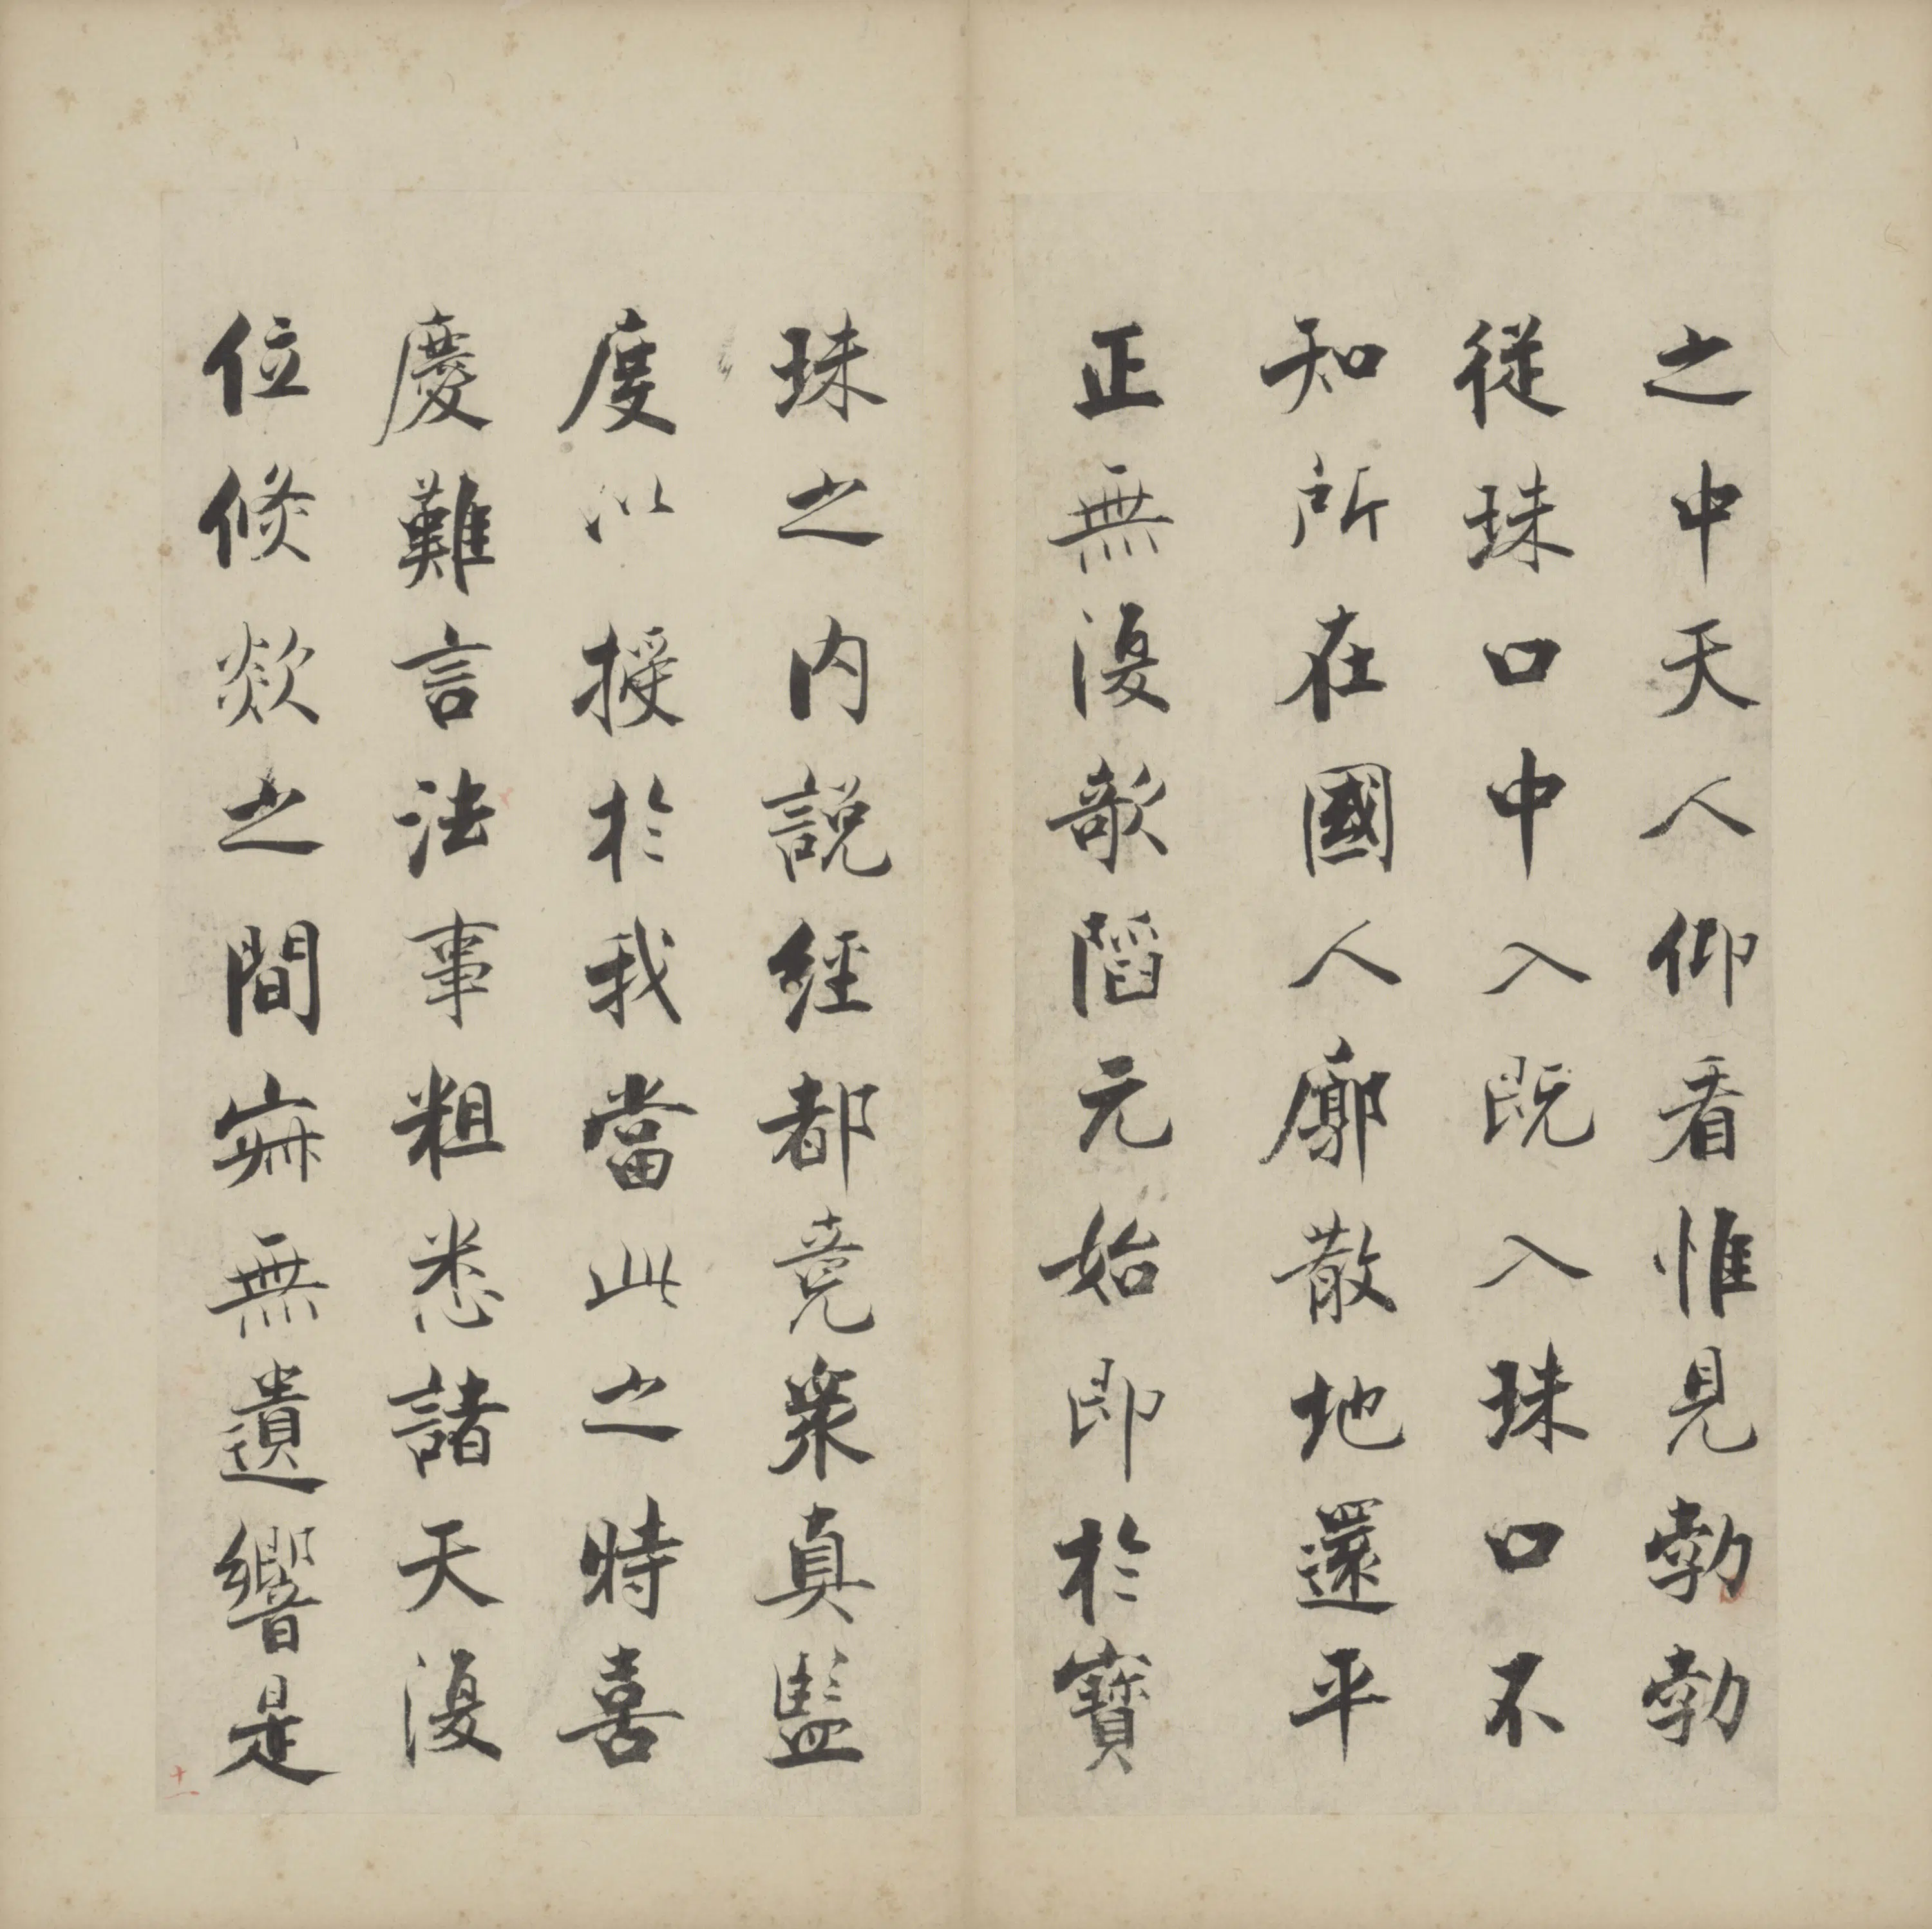 之中天人仰看惟見勃勃
從珠口中入既入珠口不
知所在國人廓散地還平
正無復欹陷元始即於寶
珠之内說經都竟衆真監
度以授於我當此之時喜
慶難言法事粗悉諸天復
位倏欻之間寂無遺響是
十一